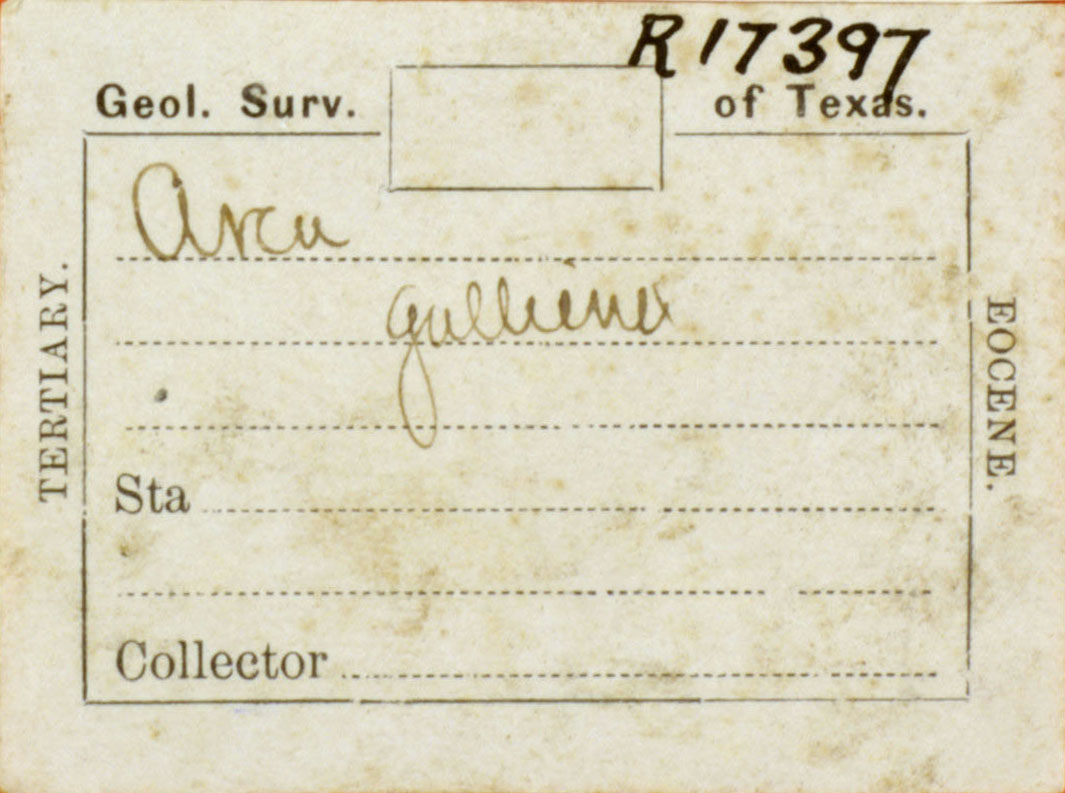 R17397
Geol. Surv. of Texas.
TERTIARY.
EOCENE.
Arca
Sta
Collector